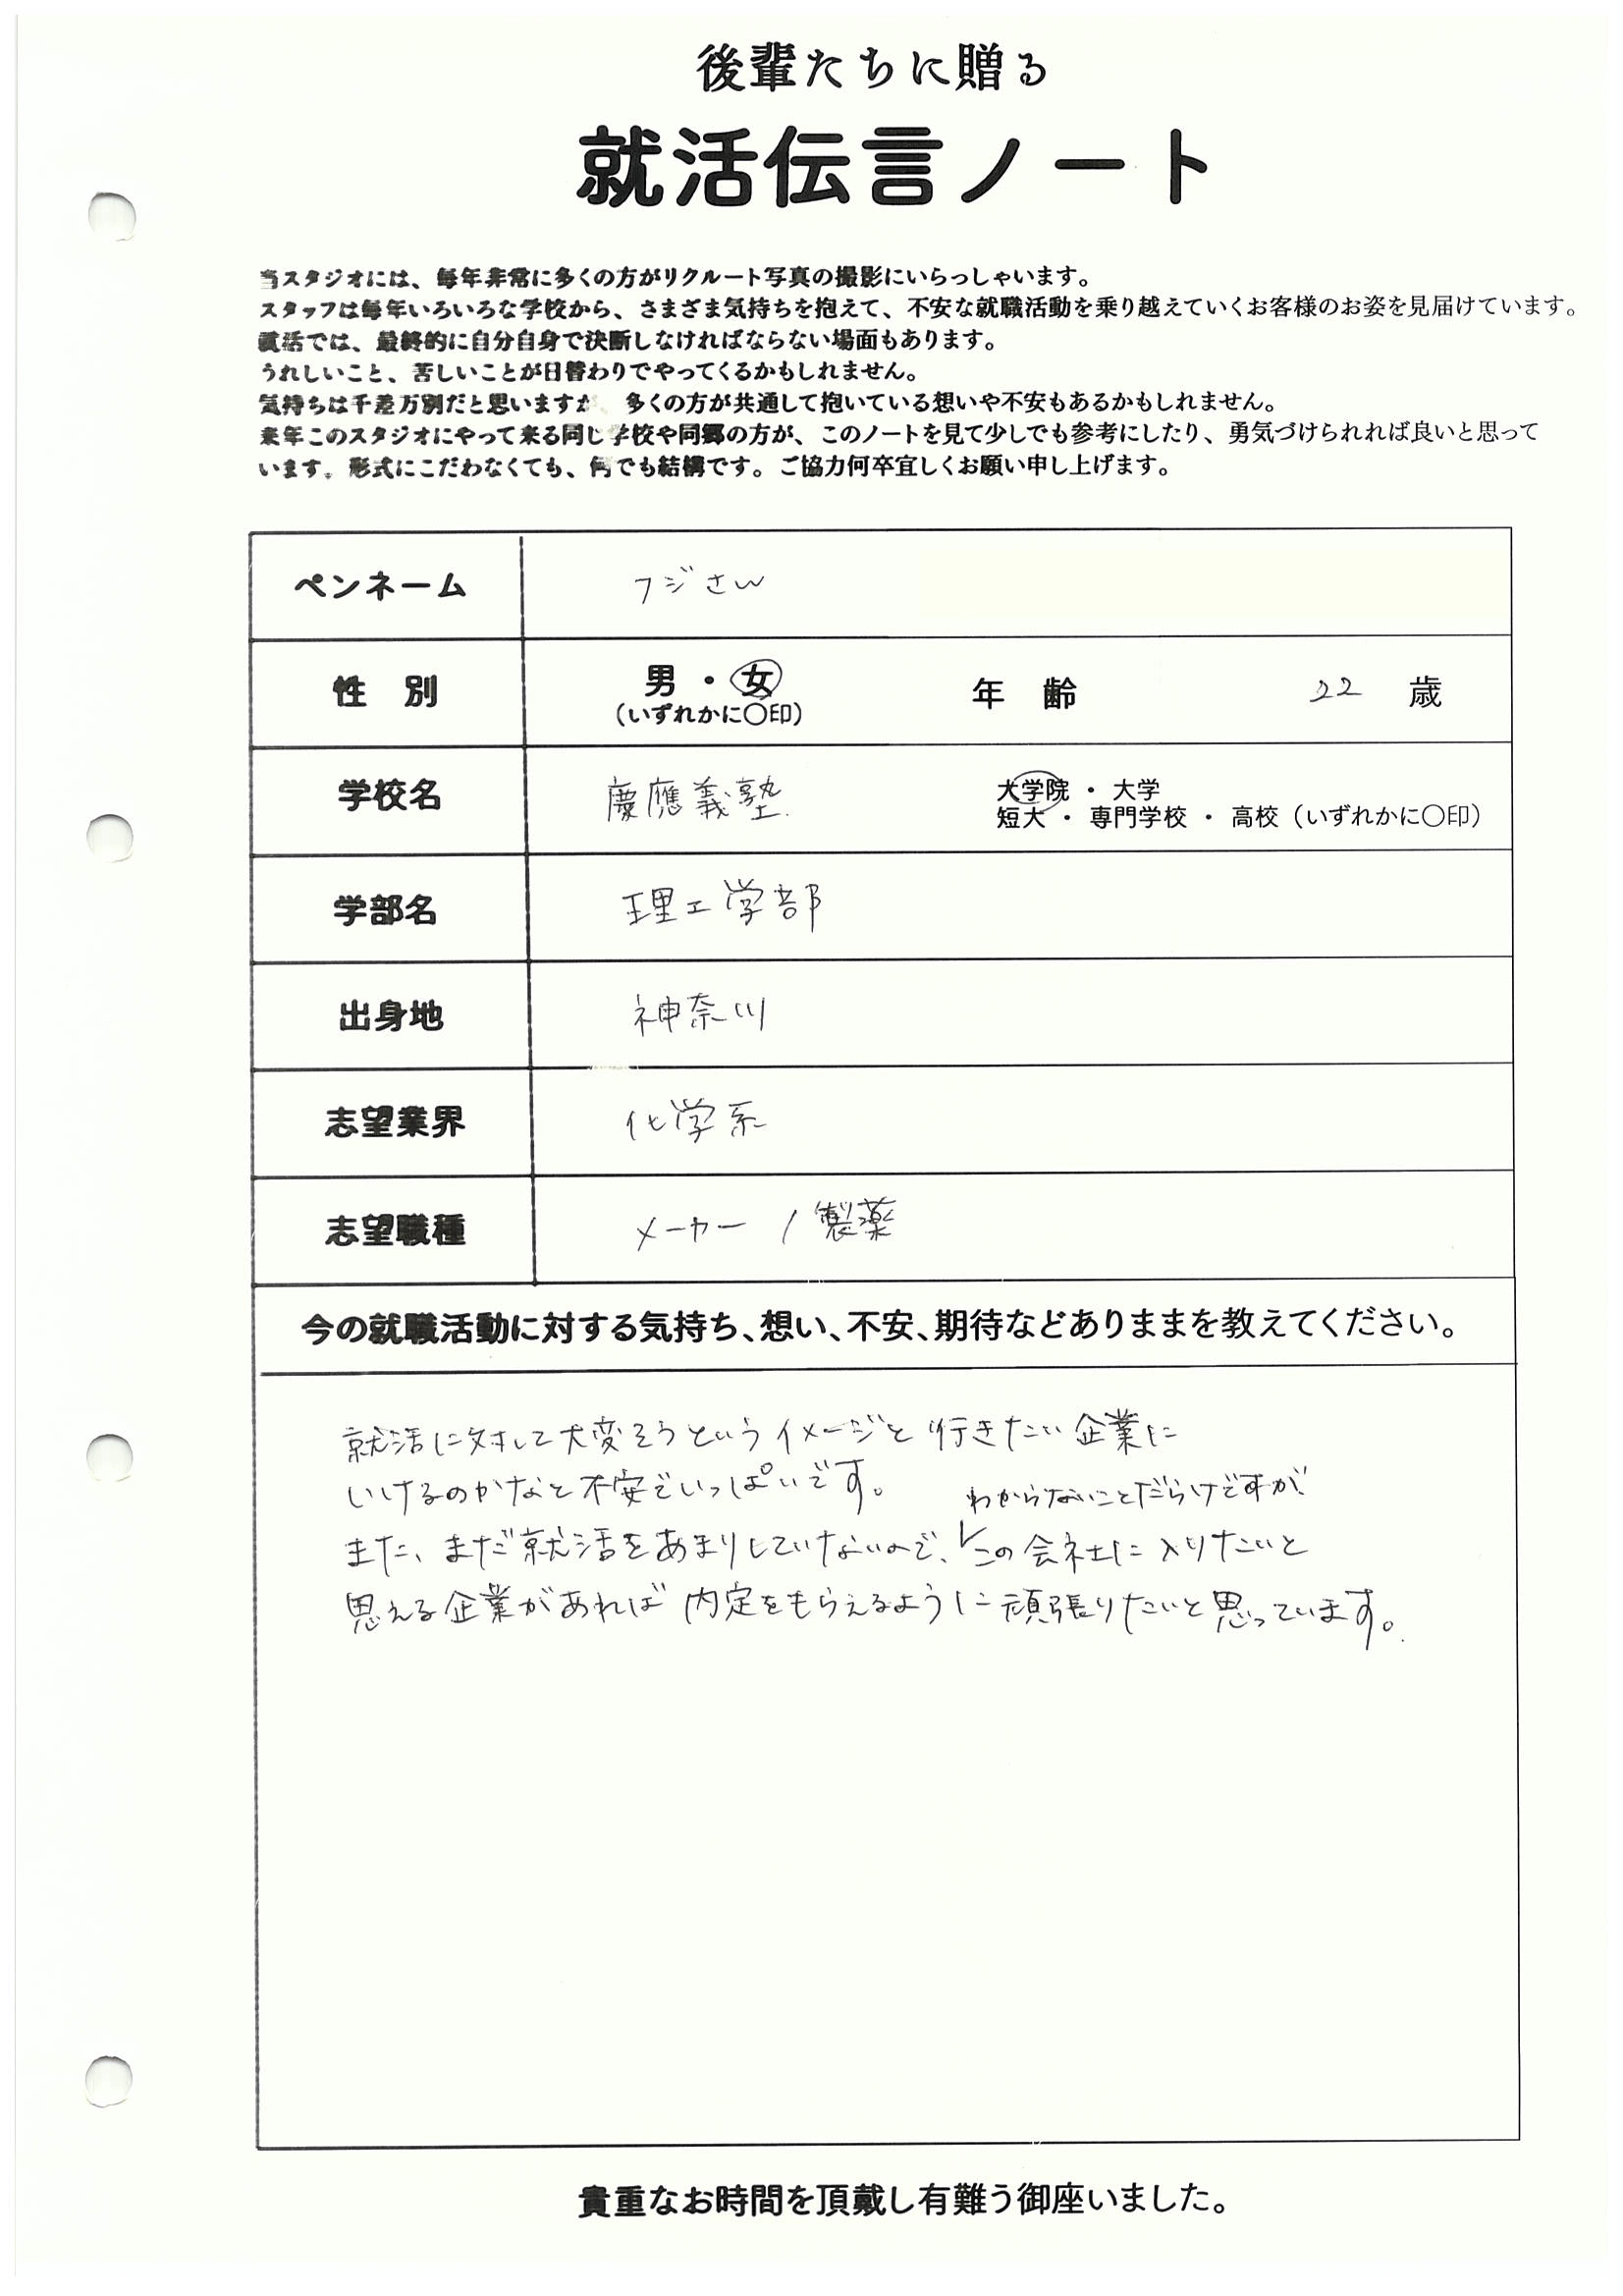 後輩たちに贈る
就活伝言ノート
当スタジオには、毎年非常に多くの方がリクルート写真の撮影にいらっしゃいます。
スタッフは毎年いろいろな学校から、さまざま気持ちを抱えて、不安な就職活動を乗り越えていくお客様のお姿を見届けています。
就活では、最終的に自分自身で決断しなければならない場面もあります。
うれしいこと、苦しいことが日替わりでやってくるかもしれません。
気持ちは千差万別だと思いますが、多くの方が共通して抱いている想いや不安もあるかもしれません。
来年このスタジオにやって来る同じ学校や同郷の方が、このノートを見て少しでも参考にしたり、勇気づけられれば良いと思って
います。形式にこだわなくても、何でも結構です。ご協力何卒宜しくお願い申し上げます。
ペンネーム フジさん
性 別 男 ・ 女 年 齢 22 歳
(いずれかに〇印)
学校名 慶應義塾 大学院 ・ 大学
短大 ・ 専門学校 ・ 高校 (いずれかに〇印)
学部名 理工学部
出身地 神奈川
志望業界 化学系
志望職種 メーカー / 製薬
今の就職活動に対する気持ち、想い、不安、期待などありままを教えてください。
就活に対して大変そうというイメージと行きたい企業に
いけるのかなと不安でいっぱいです。
わからないことだらけですが、
また、まだ就活をあまりしていないので、この会社に入りたいと
思える企業があれば内定をもらえるように頑張りたいと思っています。
貴重なお時間を頂戴し有難う御座いました。